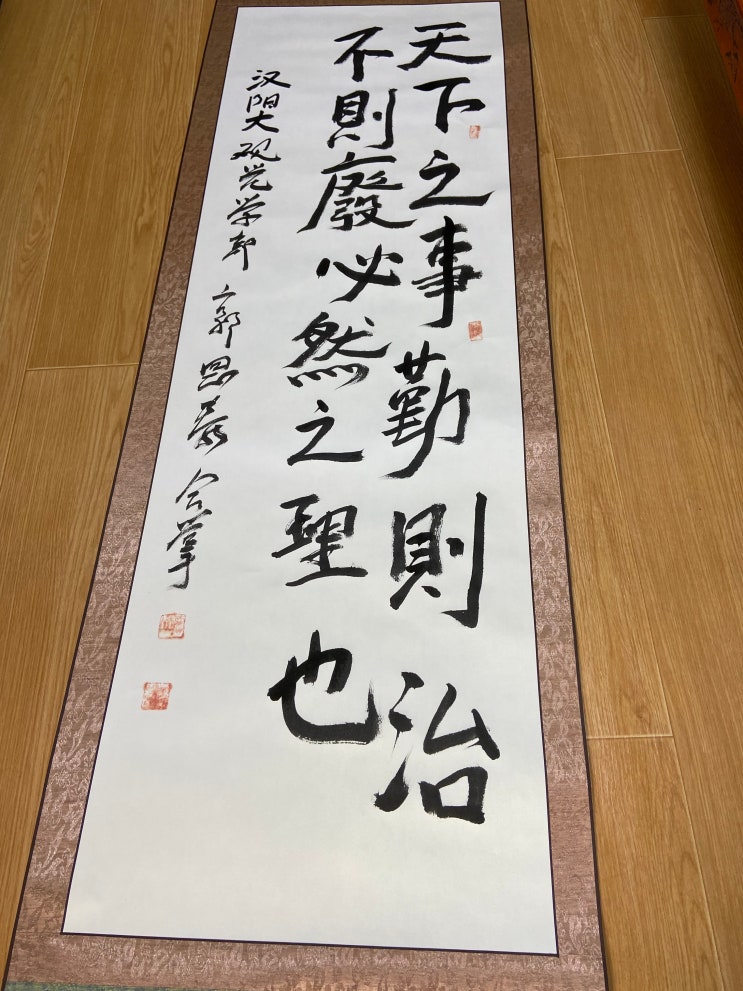 天下之事勤則治
不則廢必然之聖也
汉阳大观光学部 郭恩 合掌